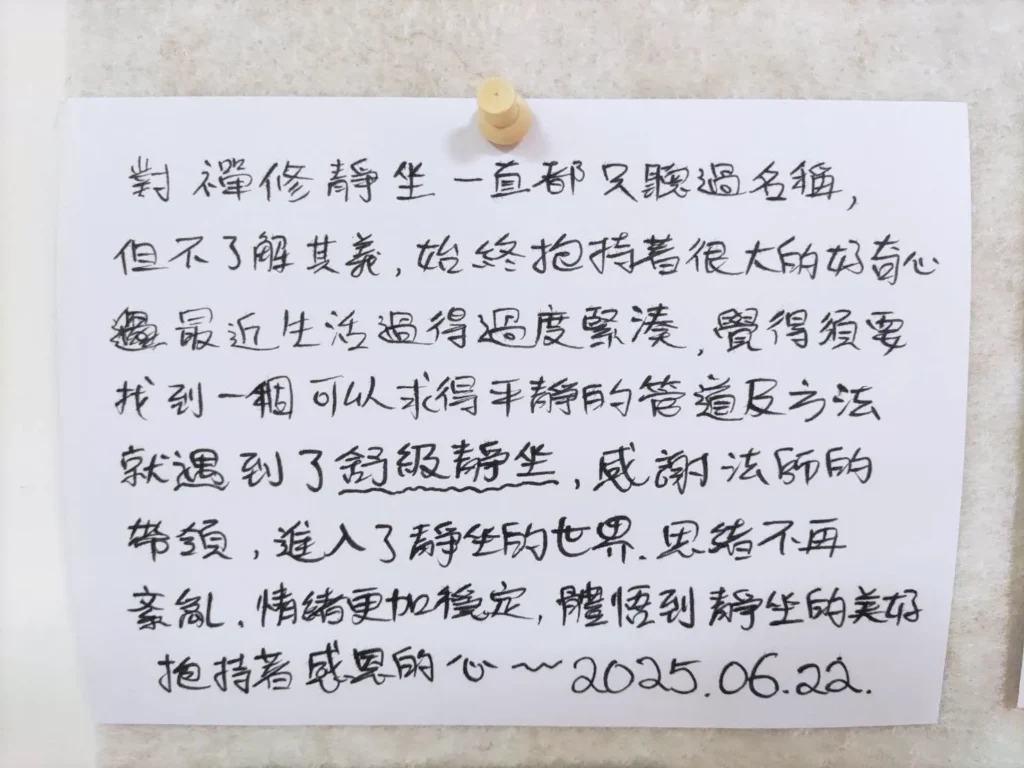 對禪修靜坐一直都只聽過名稱,
但不了解其義,始終抱持著很大的好奇心
最近生活過得過度緊湊,覺得須要
找到一個可以求得平靜的管道及方法
就遇到了舒級靜坐,感謝法師的
帶領,進入了靜坐的世界.思緒不再
紊亂.情緒更加穩定,體悟到靜坐的美好
抱持著感恩的心~2025.06.22.